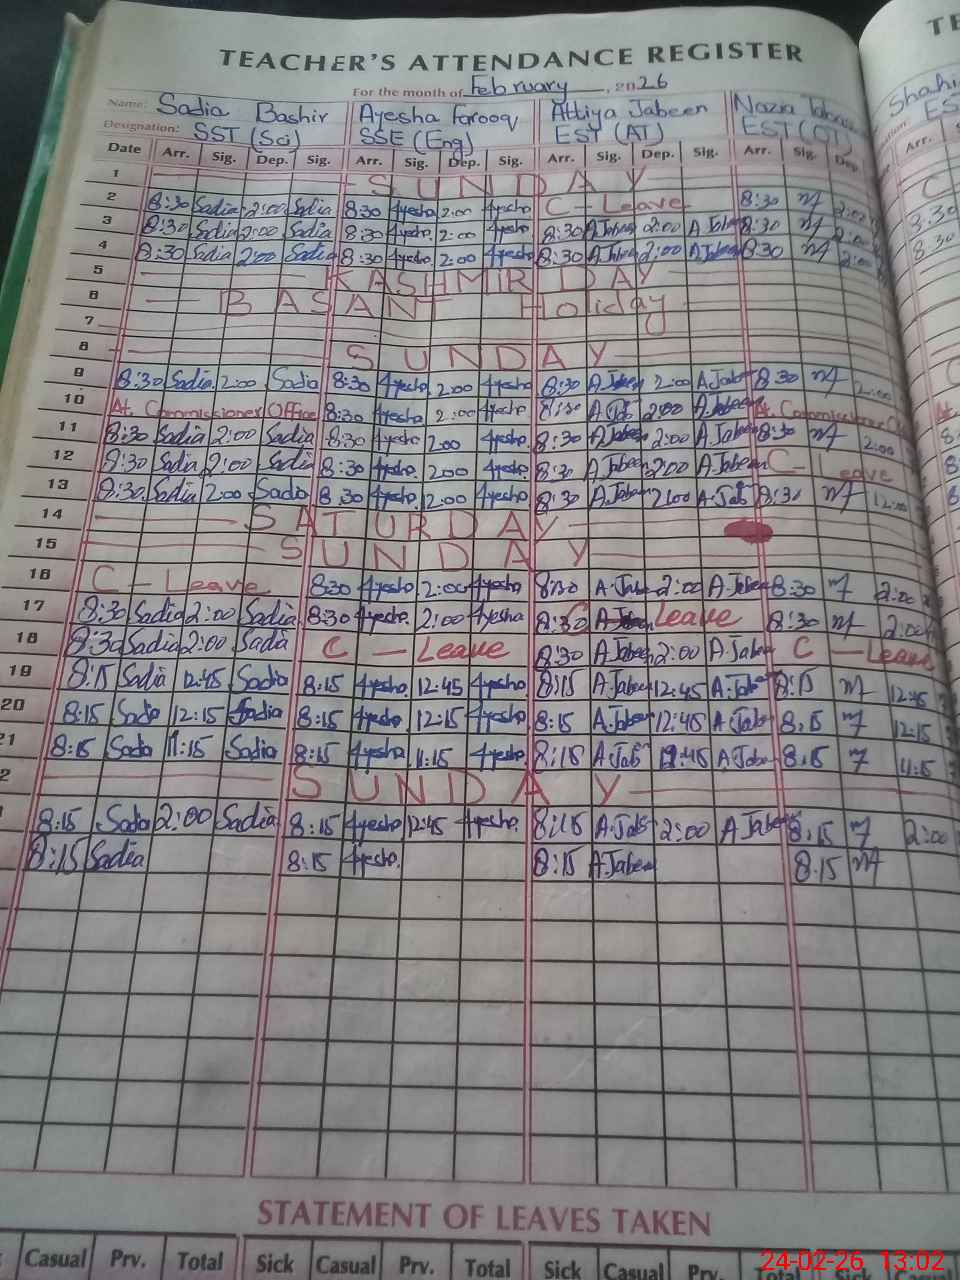 TEACHER'S ATTENDANCE REGISTER
For the month of February, 2026
Name: Sadia Bashir Ayesha Farooq Attiya Jabeen Nazia
Designation: SST (Sci) SSE (Eng) EST (AT) EST
Date Arr. Sig. Dep. Sig. Arr. Sig. Dep. Sig. Arr. Sig. Dep. Sig. Arr. Sig. Dep. Arr.
1 SUNDAY
2 8:30 Sadia 2:00 Sadia 8:30 Ayesha 2:00 Ayesha C-Leave 8:30 2:00
3 8:30 Sadia 2:00 Sadia 8:30 Ayesha 2:00 Ayesha 8:30 A.Jabeen 2:00 A.Jabeen 8:30 2:00 8:30
4 8:30 Sadia 2:00 Sadia 8:30 Ayesha 2:00 Ayesha 8:30 A.Jabeen 2:00 A.Jabeen 8:30 2:00 8:30
5 KASHMIR DAY
6 BASANT Holiday
7
8 SUNDAY
9 8:30 Sadia 2:00 Sadia 8:30 Ayesha 2:00 Ayesha 8:30 A.Jabeen 2:00 A.Jabeen 8:30 2:00
10 At. Commissioner Office 8:30 Ayesha 2:00 Ayesha 8:30 A.Jab 2:00 A.Jabeen At. Commissioner
11 8:30 Sadia 2:00 Sadia 8:30 Ayesha 2:00 Ayesha 8:30 A.Jabeen 2:00 A.Jabeen 8:30 2:00
12 8:30 Sadia 2:00 Sadia 8:30 Ayesha 2:00 Ayesha 8:30 A.Jabeen 2:00 A.Jabeen C-Leave
13 8:30 Sadia 2:00 Sadia 8:30 Ayesha 2:00 Ayesha 8:30 A.Jabeen 2:00 A.Jab 8:30 12:00
14 SATURDAY
15 SUNDAY
16 C-Leave 8:30 Ayesha 2:00 Ayesha 8:30 A.Jab 2:00 A.Jabeen 8:30 2:00
17 8:30 Sadia 2:00 Sadia 8:30 Ayesha 2:00 Ayesha C Leave 8:30 2:00
18 8:30 Sadia 2:00 Sadia C-Leave 8:30 A.Jabeen 2:00 A.Jabeen C-Leave
19 8:15 Sadia 12:45 Sadia 8:15 Ayesha 12:45 Ayesha 8:15 A.Jabeen 12:45 A.Jab 8:15 12:45
20 8:15 Sadia 12:15 Sadia 8:15 Ayesha 12:15 Ayesha 8:15 A.Jabeen 12:45 A.Jab 8:15 12:15
21 8:15 Sada 11:15 Sadia 8:15 Ayesha 11:15 Ayesha 8:15 A.Jab A.Jabe 8:15 11:15
2 SUNDAY
8:15 Sada 2:00 Sadia 8:15 Ayesha 12:45 Ayesha 8:15 A.Jab 2:00 A.Jabeen 8:15 2:00
8:15 Sadia 8:15 Ayesha 8:15 A.Jabeen 8:15
STATEMENT OF LEAVES TAKEN
Casual Prv. Total Sick Casual Prv. Total Sick Casual Prv. Total Sick
24-02-26 13:02